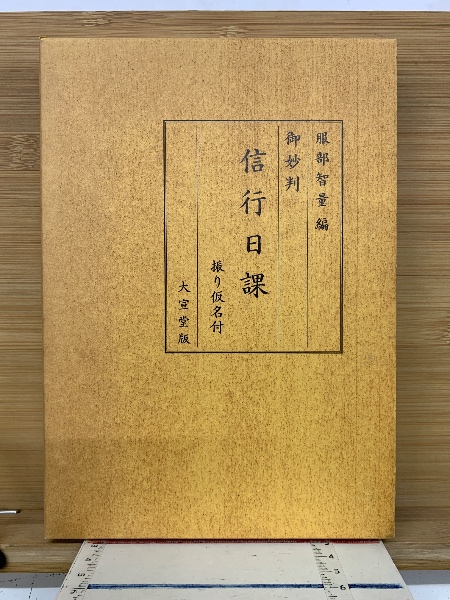 服部智量 編
御妙判
信行日課
振り仮名付
大宣堂版